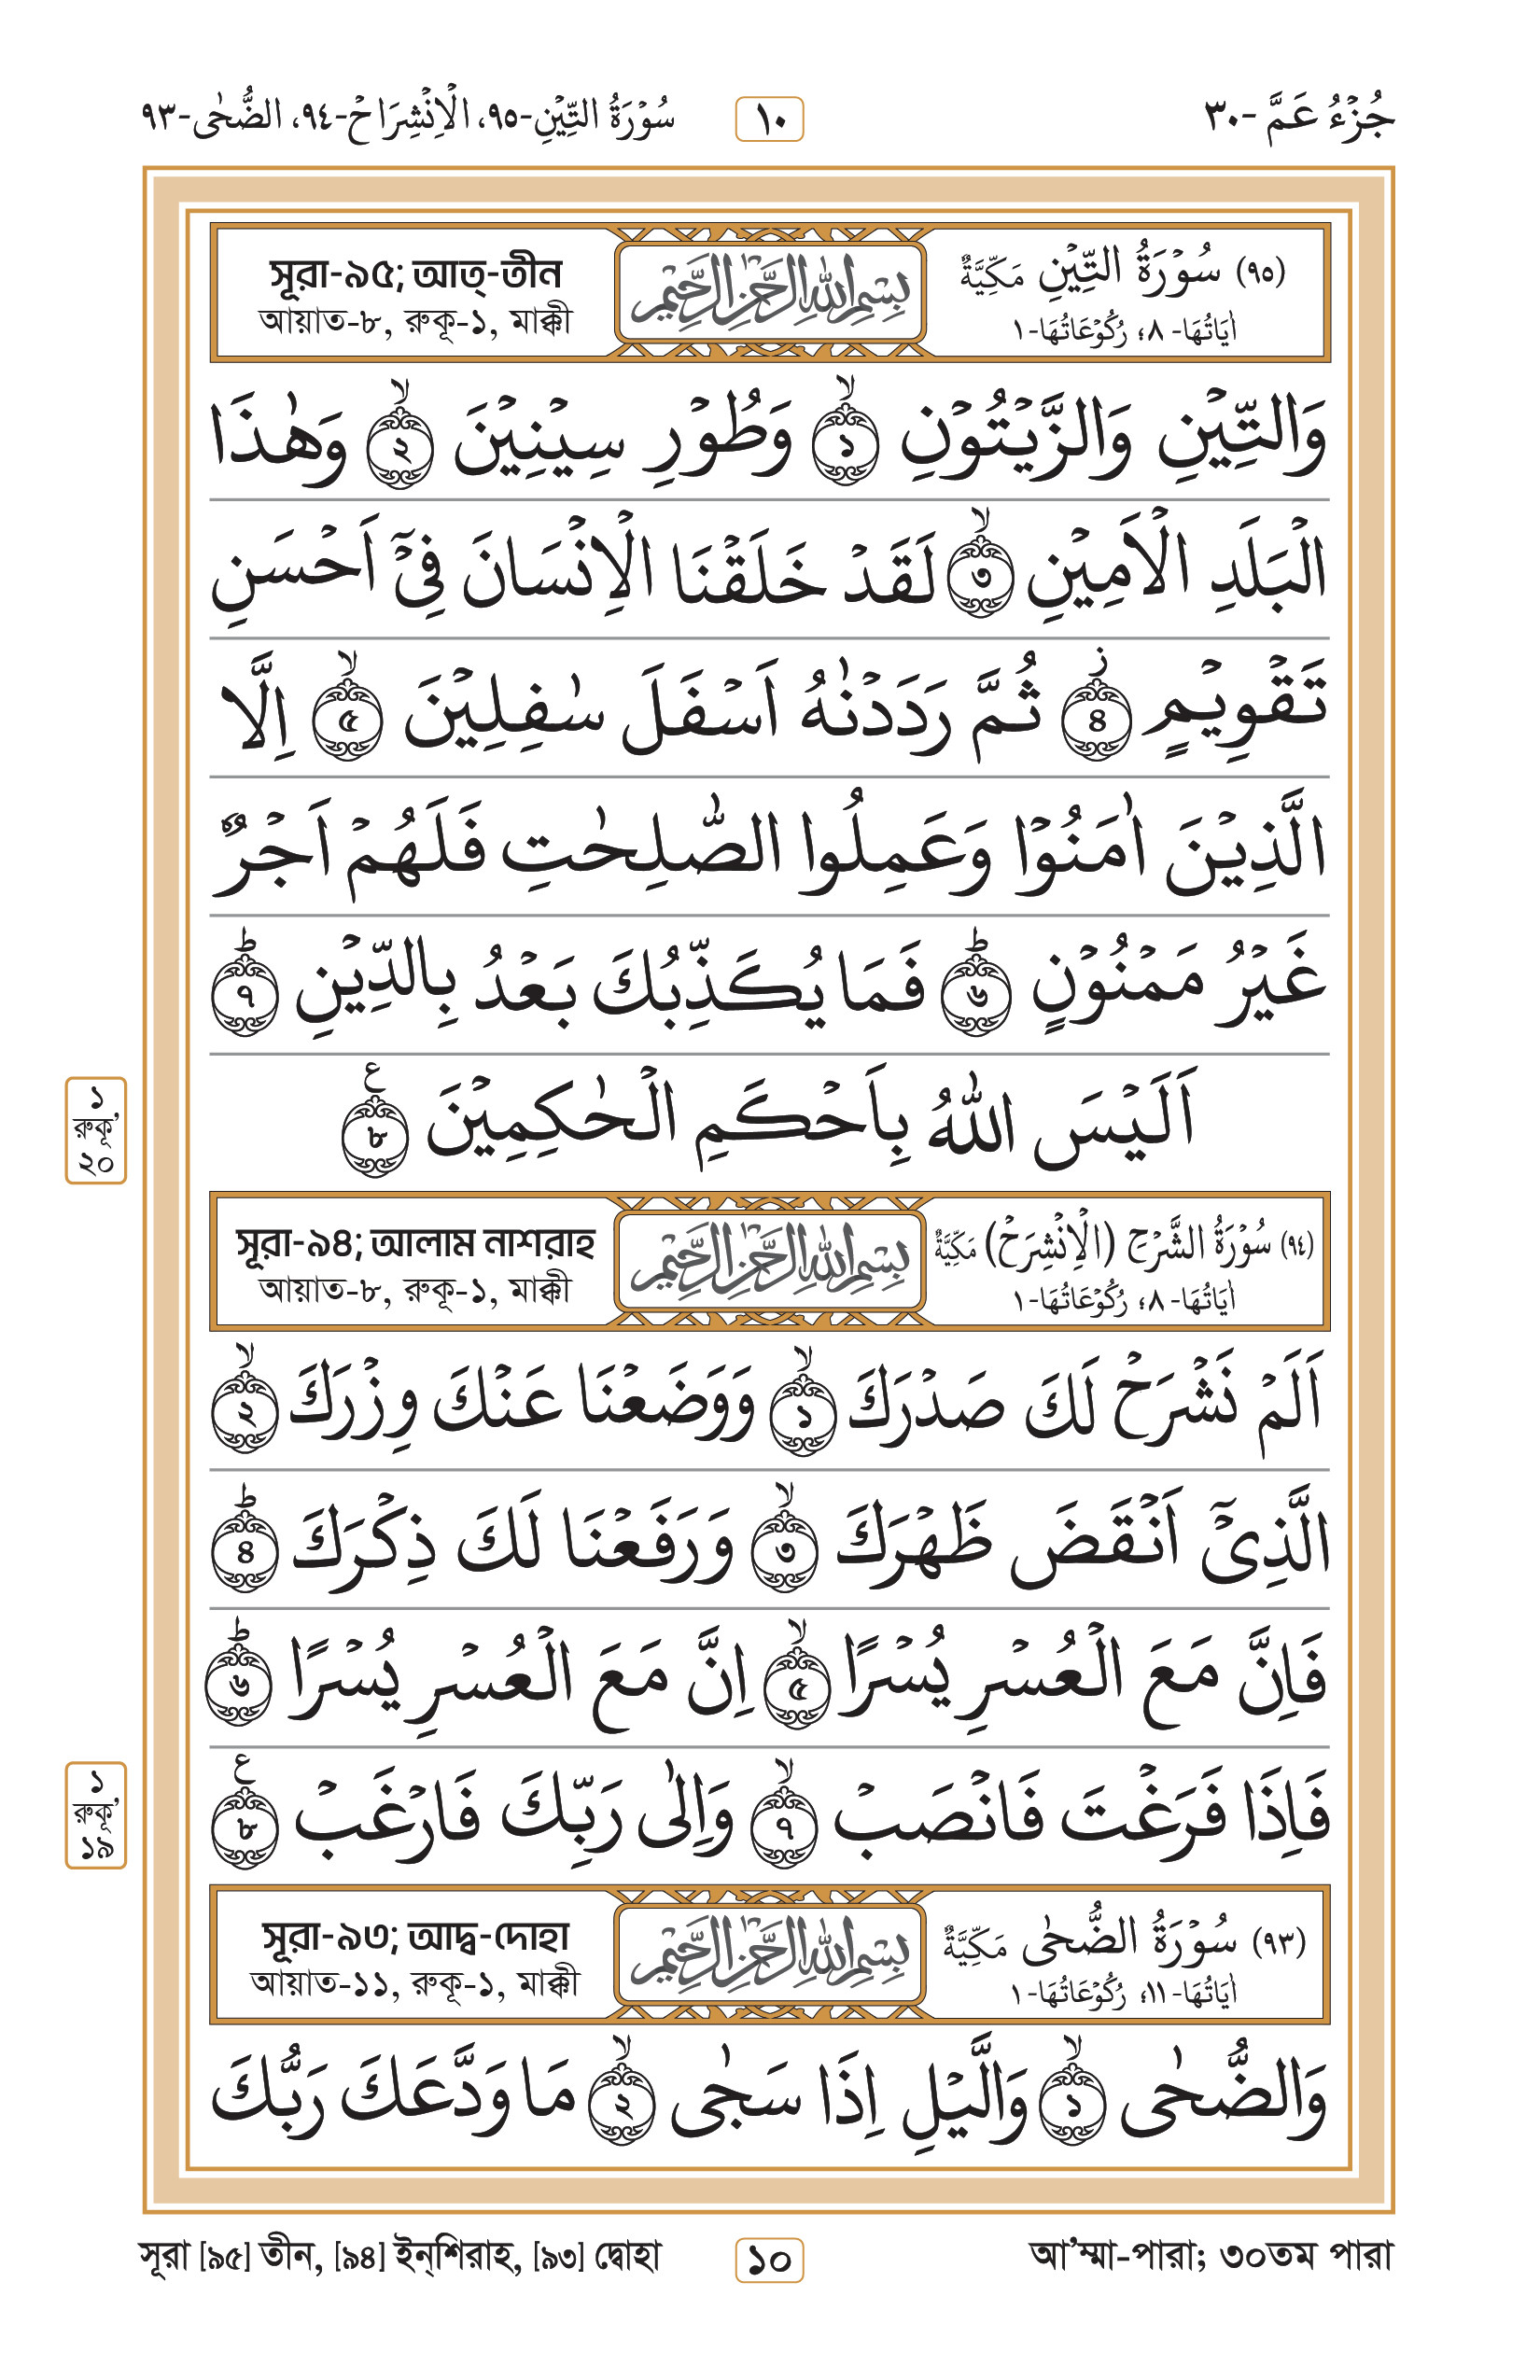 جُزْءُ عَمَّ -٣٠
١٠
سُوْرَةُ التِّيْنِ-٩٥، الْاِنْشِرَاحْ-٩٤، الضُّحٰى-٩٣
(٩٥) سُوْرَةُ التِّيْنِ مَكِّيَّةٌ
اٰيَاتُهَا- ٨؛ رُكُوْعَاتُهَا-١
بِسْمِ اللهِ الرَّحْمٰنِ الرَّحِيْمِ
সূরা-৯৫; আত্-তীন
আয়াত-৮, রুকূ-১, মাক্কী
وَالتِّيْنِ وَالزَّيْتُوْنِ ۙ ১ وَطُوْرِ سِيْنِيْنَ ۙ ২ وَهٰذَا
الْبَلَدِ الْاَمِيْنِ ۙ ৩ لَقَدْ خَلَقْنَا الْاِنْسَانَ فِيْٓ اَحْسَنِ
تَقْوِيْمٍ ز ৪ ثُمَّ رَدَدْنٰهُ اَسْفَلَ سٰفِلِيْنَ ۙ ৫ اِلَّا
الَّذِيْنَ اٰمَنُوْا وَعَمِلُوا الصّٰلِحٰتِ فَلَهُمْ اَجْرٌ
غَيْرُ مَمْنُوْنٍ ؕ ৬ فَمَا يُكَذِّبُكَ بَعْدُ بِالدِّيْنِ ؕ ৭
اَلَيْسَ اللّٰهُ بِاَحْكَمِ الْحٰكِمِيْنَ ع ৮
১
রুকূ,
২০
(٩٤) سُوْرَةُ الشَّرْحِ (الْاِنْشِرَحْ) مَكِّيَّةٌ
اٰيَاتُهَا- ٨؛ رُكُوْعَاتُهَا-١
بِسْمِ اللهِ الرَّحْمٰنِ الرَّحِيْمِ
সূরা-৯৪; আলাম নাশরাহ
আয়াত-৮, রুকূ-১, মাক্কী
اَلَمْ نَشْرَحْ لَكَ صَدْرَكَ ۙ ১ وَوَضَعْنَا عَنْكَ وِزْرَكَ ۙ ২
الَّذِيْٓ اَنْقَضَ ظَهْرَكَ ۙ ৩ وَرَفَعْنَا لَكَ ذِكْرَكَ ؕ ৪
فَاِنَّ مَعَ الْعُسْرِ يُسْرًا ۙ ৫ اِنَّ مَعَ الْعُسْرِ يُسْرًا ؕ ৬
فَاِذَا فَرَغْتَ فَانْصَبْ ۙ ৭ وَاِلٰى رَبِّكَ فَارْغَبْ ع ৮
১
রুকূ,
১৯
(٩٣) سُوْرَةُ الضُّحٰى مَكِّيَّةٌ
اٰيَاتُهَا- ١١؛ رُكُوْعَاتُهَا-١
بِسْمِ اللهِ الرَّحْمٰنِ الرَّحِيْمِ
সূরা-৯৩; আদ্ব-দোহা
আয়াত-১১, রুকূ-১, মাক্কী
وَالضُّحٰى ۙ ১ وَالَّيْلِ اِذَا سَجٰى ۙ ২ مَا وَدَّعَكَ رَبُّكَ
সূরা [৯৫] তীন, [৯৪] ইন্‌শিরাহ, [৯৩] দ্বোহা
১০
আ’ম্মা-পারা; ৩০তম পারা